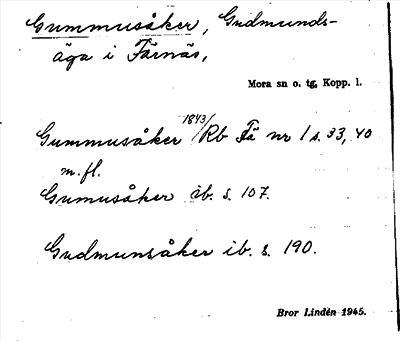 Gummusåker, Gudmunds-
äga i Färnäs,
Mora sn o. tg, Kopp. l.
Gummusåker 1843/Rb Fä nr 1 s. 33, 40
m. fl.
Gumusåker ib. s. 107.
Gudmunsåker ib. s. 190.
Bror Lindén 1945.